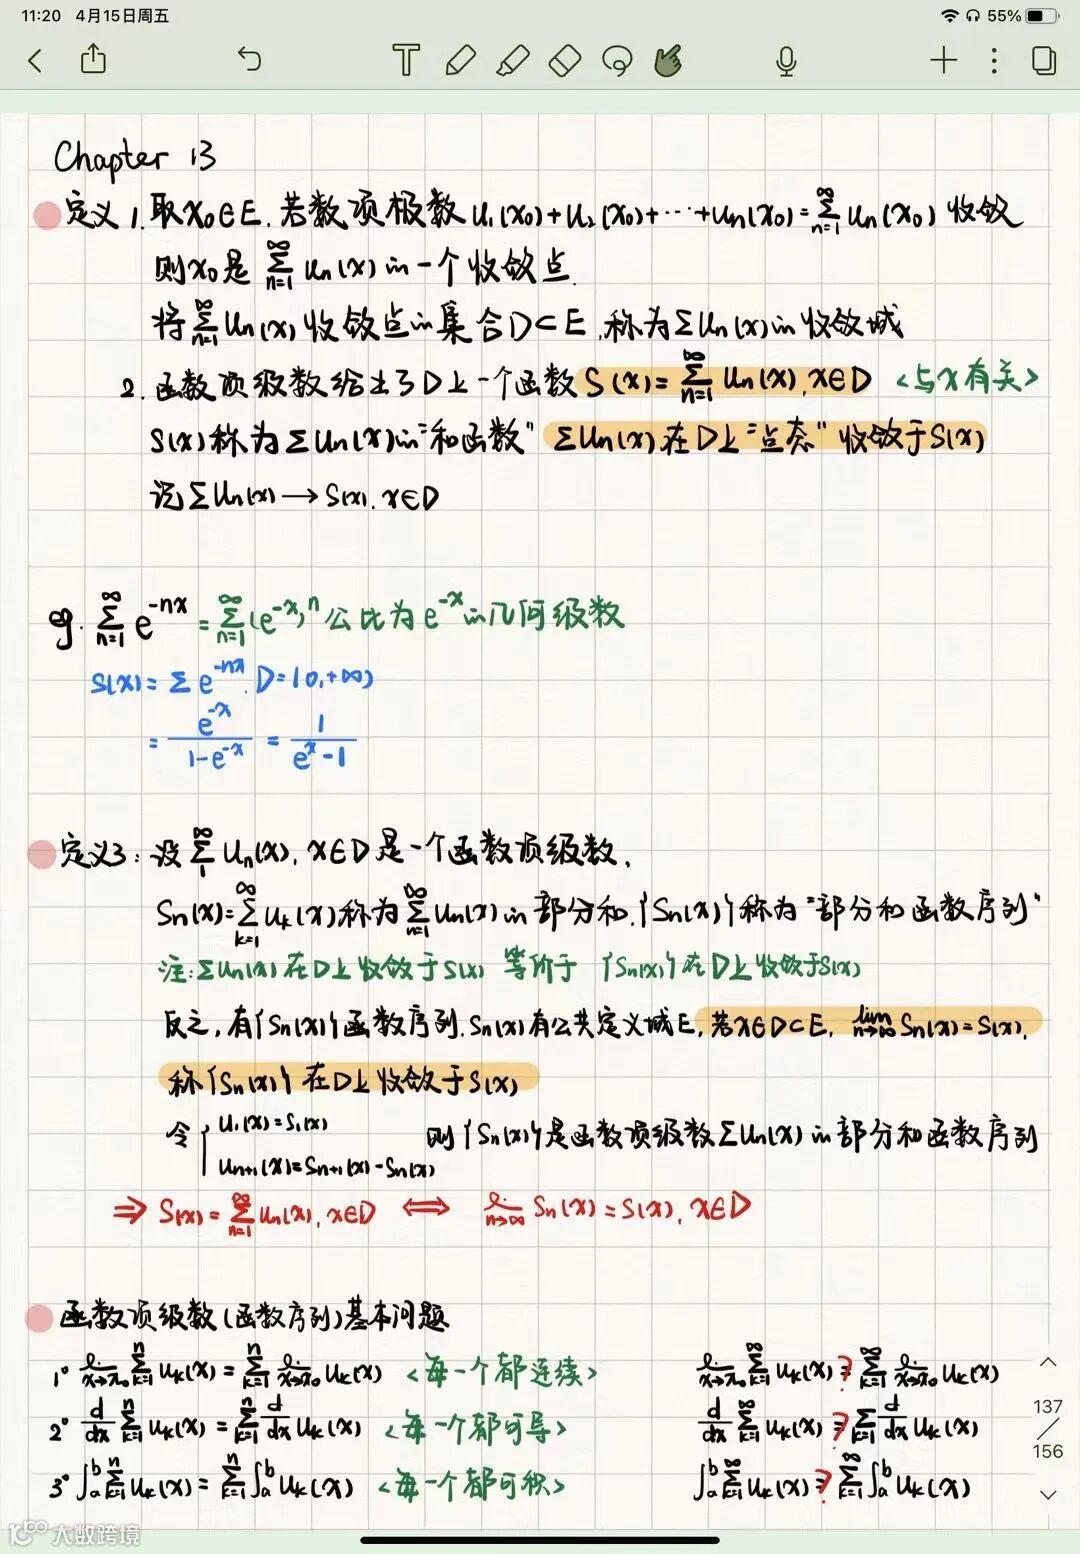 11:20 4月15日周五
55%
Chapter 13
定义1. 取x₀∈E. 若数项极数 u₁(x₀)+u₂(x₀)+⋯+uₙ(x₀)=∑_{n=1}^∞ uₙ(x₀) 收敛
则x₀是 ∑_{n=1}^∞ uₙ(x) in 一个收敛点.
将 ∑_{n=1}^∞ uₙ(x) 收敛点in集合D⊂E, 称为∑uₙ(x) in 收敛域
2. 函数项级数给出了D上一个函数 S(x)=∑_{n=1}^∞ uₙ(x), x∈D <与x有关>
S(x)称为∑uₙ(x)in"和函数" ∑uₙ(x)在D上"点态"收敛于S(x)
记∑uₙ(x)→S(x), x∈D
eg. ∑_{n=1}^∞ e^{-nx} = ∑_{n=1}^∞ (e^{-x})^n 公比为e^{-x} in几何级数
S(x)=∑e^{-nx}, D=(0,+∞)
= e^{-x}/(1-e^{-x}) = 1/(e^x-1)
定义3: 设 ∑_1^∞ uₙ(x), x∈D是一个函数项级数,
Sₙ(x)=∑_{k=1}^∞ uₖ(x)称为∑_{n=1}^∞ uₙ(x) in 部分和, {Sₙ(x)}称为"部分和函数序列"
注: ∑uₙ(x)在D上收敛于S(x) 等价于 {Sₙ(x)}在D上收敛于S(x)
反之, 有{Sₙ(x)}函数序列, Sₙ(x)有公共定义域E, 若x∈D⊂E, lim_{n→∞} Sₙ(x)=S(x),
称{Sₙ(x)}在D上收敛于S(x)
令 { u₁(x)=S₁(x)
uₙ₊₁(x)=Sₙ₊₁(x)-Sₙ(x) 则{Sₙ(x)}是函数项级数∑uₙ(x) in 部分和函数序列
⇒ S(x)=∑_{n=1}^∞ uₙ(x), x∈D ⇔ l._{n→∞} Sₙ(x)=S(x), x∈D
函数项级数(函数序列)基本问题
1° l._{x→x₀} ∑_{k=1}^n uₖ(x) = ∑_{k=1}^n l._{x→x₀} uₖ(x) <每一个都连续> l._{x→x₀} ∑_{k=1}^∞ uₖ(x) =? ∑_{k=1}^∞ l._{x→x₀} uₖ(x)
2° d/dx ∑_{k=1}^n uₖ(x) = ∑_{k=1}^n d/dx uₖ(x) <每一个都可导> d/dx ∑_{k=1}^∞ uₖ(x) =? ∑_{k=1}^∞ d/dx uₖ(x)
3° ∫_a^b ∑_{k=1}^n uₖ(x) = ∑_{k=1}^n ∫_a^b uₖ(x) <每一个都可积> ∫_a^b ∑_{k=1}^∞ uₖ(x) =? ∑_{k=1}^∞ ∫_a^b uₖ(x)
137
156
大数跨境